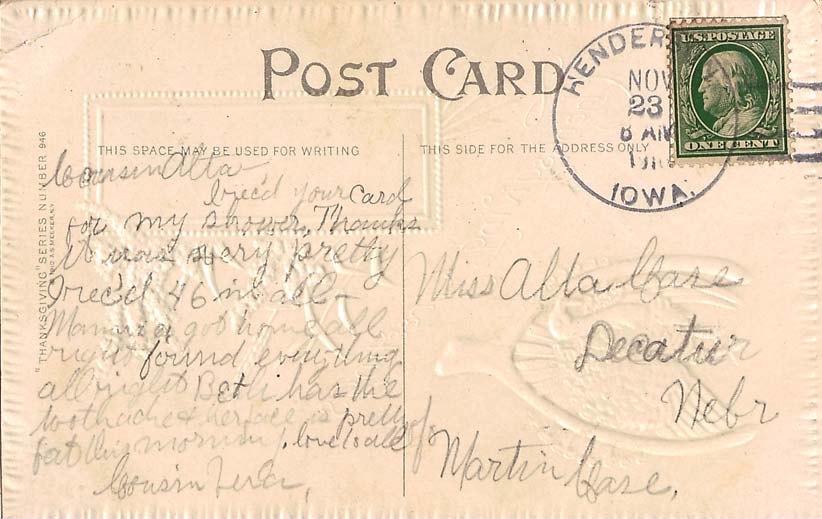 POST CARD
THIS SPACE MAY BE USED FOR WRITING
THIS SIDE FOR THE ADDRESS ONLY
"THANKSGIVING" SERIES NUMBER 946
HENDER
NOV
23
8 AM
IOWA.
U.S. POSTAGE
ONE CENT
Cousin Alta
I rec'd your card
for my shower, Thanks
it was very pretty
I rec'd 46 in all-
Mamma got home all
right found everything
all right Beth has the
toothache & her face is pretty
fat this morning, love to all
Cousin
Miss Alta Case
Decatur
Nebr
Martin Case,